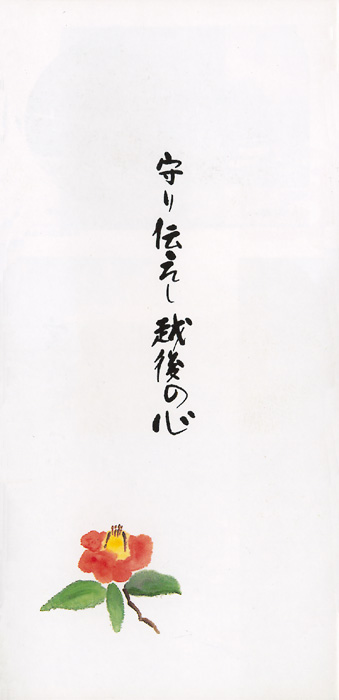 守り伝えし越後の心